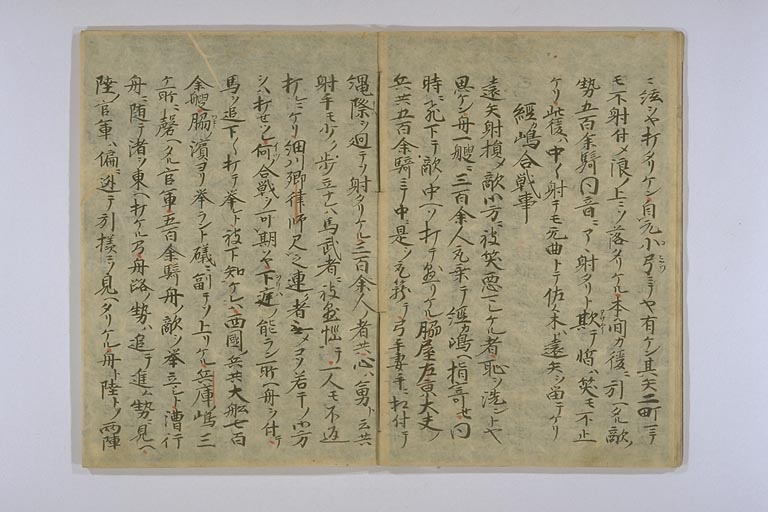 ニ弦ヲヤ打タリケン自元小弓ニテヤ有ケン其矢二町ニテ
モ不射付メ浪ノ上ニソ落タリケル本間カ後ニ引ヘタル敵
勢五百余騎同音ニアヽ射タリト欺テ暫ハ笑モ不止
ケリ此後ハ中〳〵射テモ无曲トテ佐々木ハ遠矢ヲ留テケリ
経嶋合戦事
遠矢射損メ敵御方ニ被笑悪マレケル者恥ヲ洗ントヤ
思ケン舟一艘ニ三百余人取乗テ経カ嶋ヘ指寄セ同
時ニ飛下テ敵ノ中ヘソ打テ出タリケル脇屋左京大夫ノ
兵共五百余騎ニテ中ニ是ヲ取籠テ弓手妻手ニ相付テ
縄際ヲ廻テソ射タリケル三百余人ノ者共心ハ勇ト云共
射手モ少ク歩立ナレハ馬武者ニ被出悩テ一人モ不返
打レニケリ細川卿律師是ヲ
シハ打セツレ何ノ合戦ヲ可期ソヤ下場ノ能ラン所ヘ舟ヲ付テ
馬ヲ追下〳〵打テ挙レト被下知ケレハ四国ノ兵共大船七百
余艘脇濱ヨリ挙ラント礒ニ副テソ上リケル兵庫嶋三
ケ所ニ磬ヘタル官軍五百余騎舟ノ敵ヲ挙立シト漕行
舟ニ随テ渚ヲ東ヘ打ケル乃舟路ノ勢ハ追テ進ム勢ニ見ヘ
陸ノ官軍ハ偏ニ逃テ引様ニソ見ヘタリケル舟ト陸トノ両陣